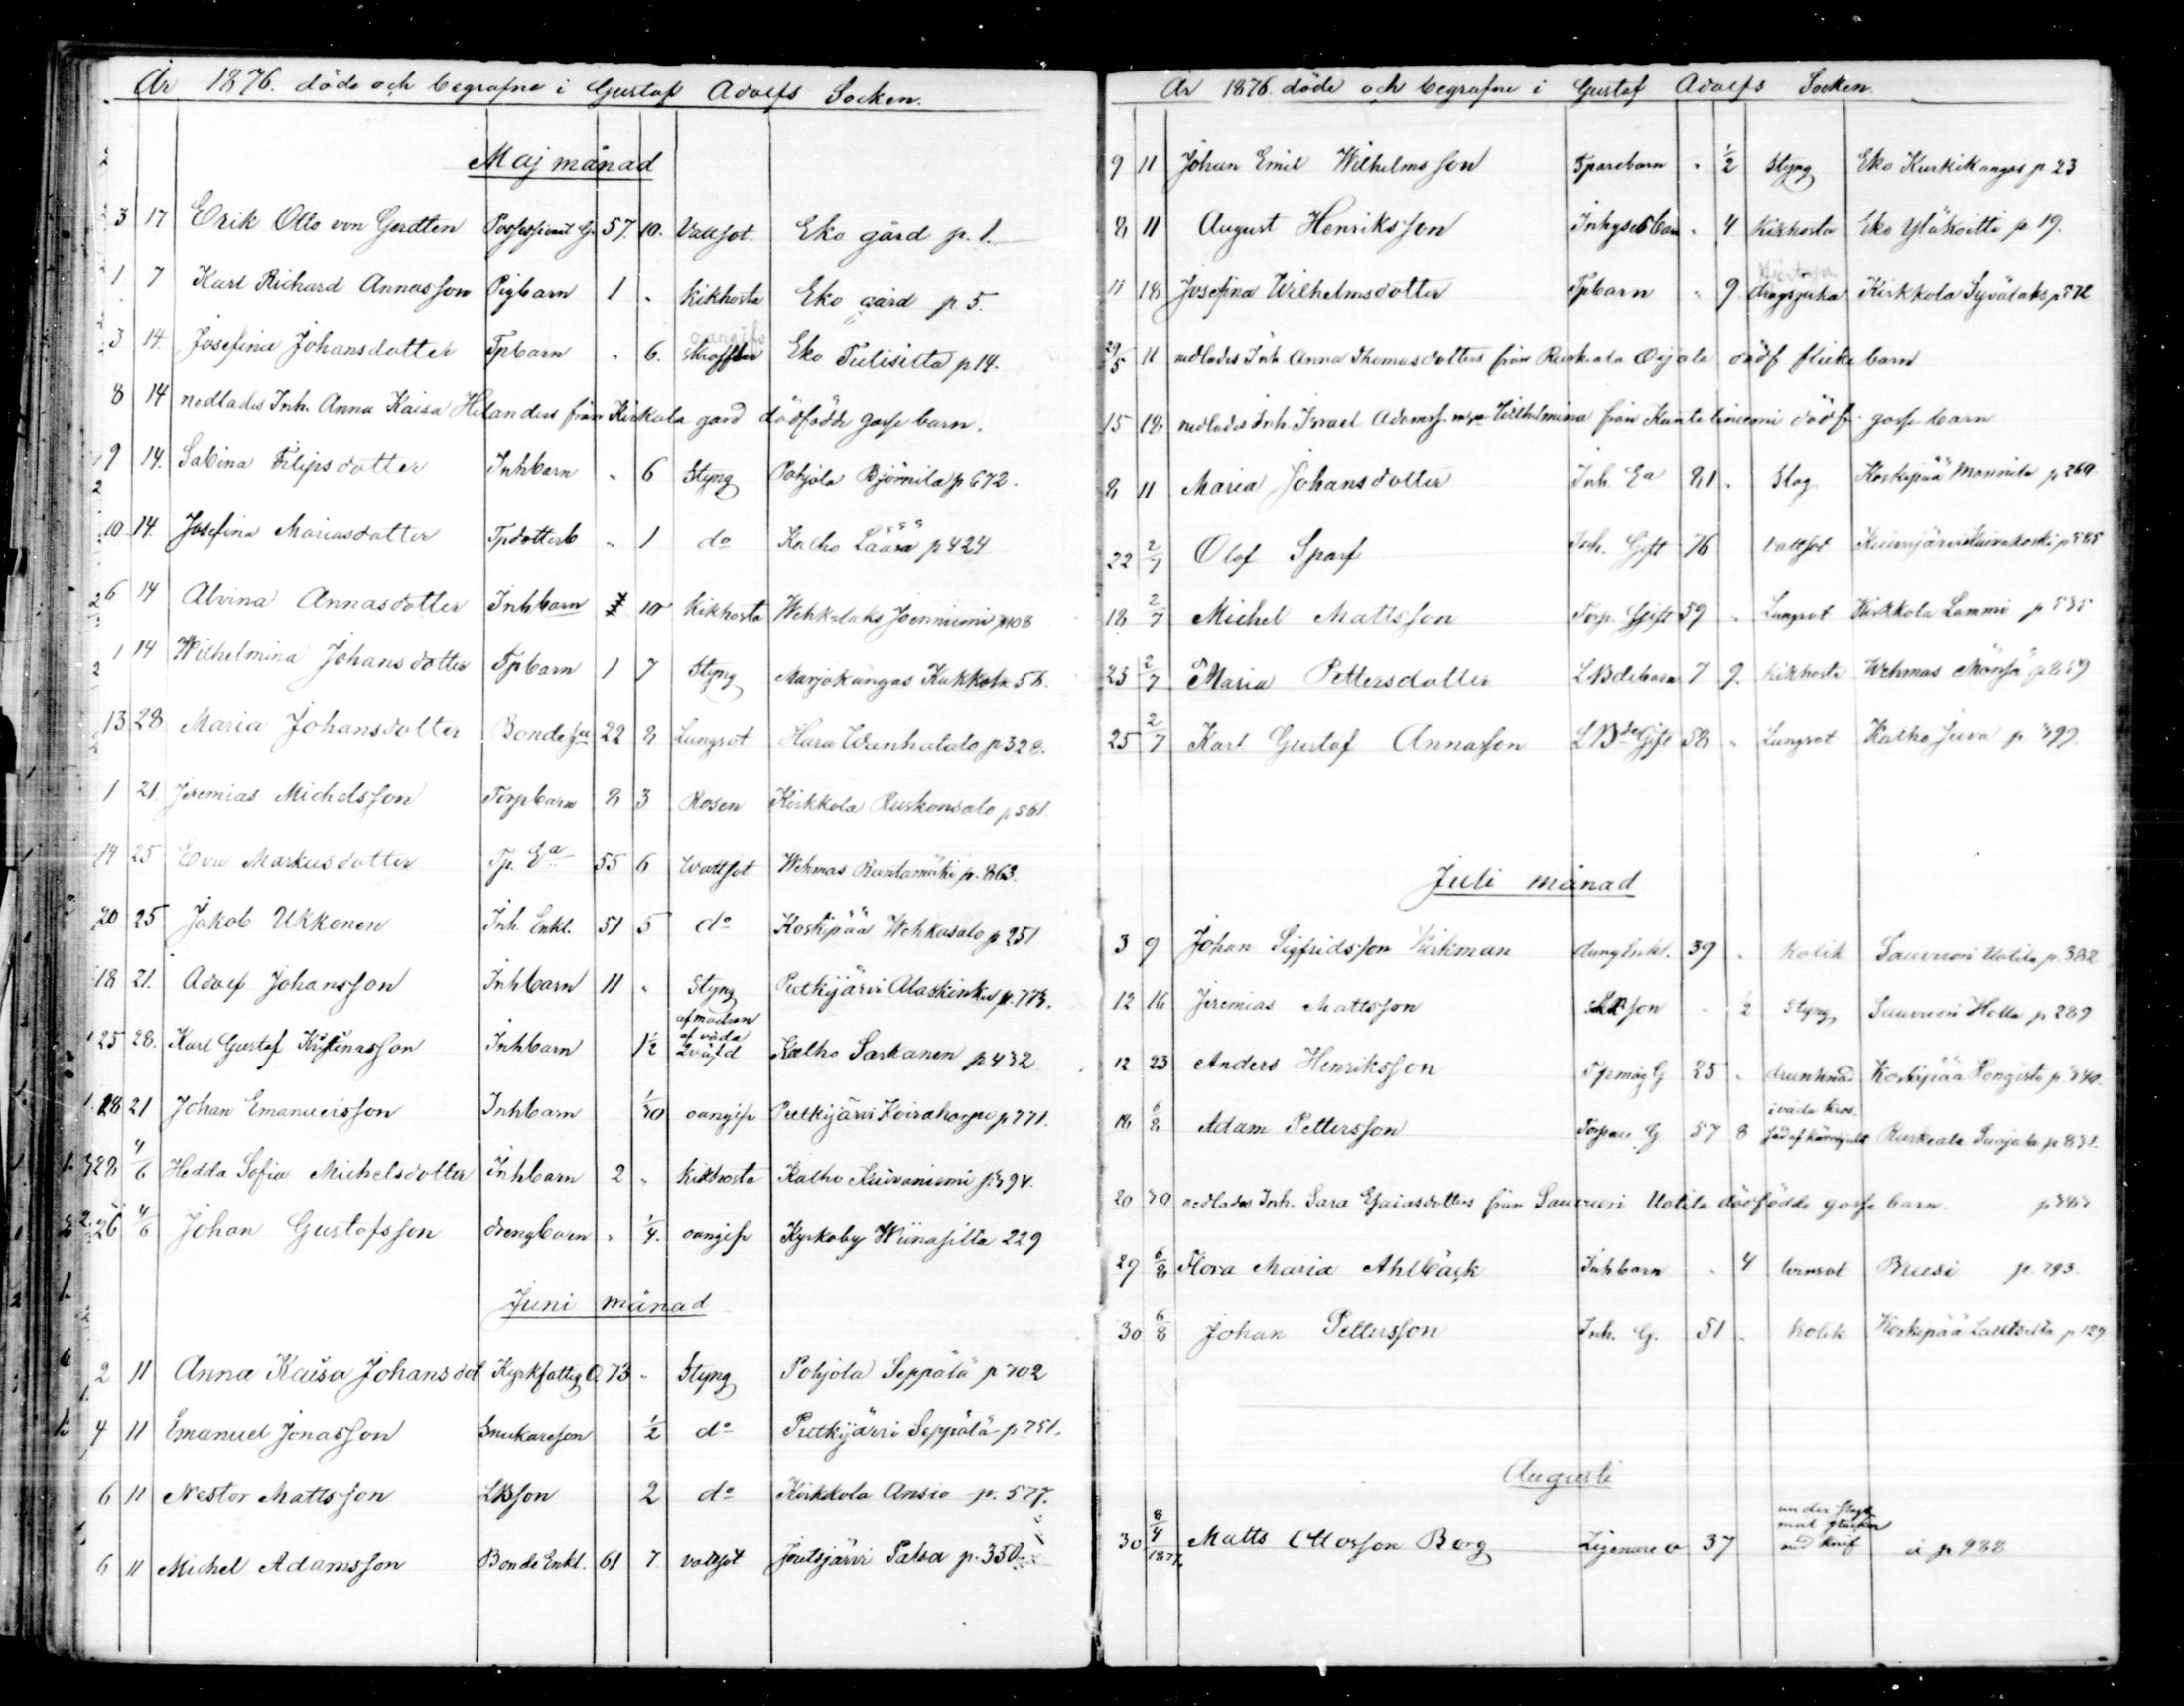 År 1876. döde och begrafne i Gustaf Adolfs Socken.
Maj månad
3 17 Erik Otto von Gerdten Possessionat G. 57. 10. Vattsot. Eko gård p. 1.
1 7 Karl Richard Annasson Pigbarn 1 " Kikhosta Eko gård p. 5.
3 14. Josefina Johansdotter Tpbarn " 6. Skrofler Eko Tulisilta p 14.
8 14 nedlades Inh. Anna Kaisa Helanders från Kirkola gård dödfödde gosse barn.
9 14. Sabina Filipsdotter Inhbarn " 6 Styng Pohjola Björnila p 672.
10 14. Josefina Mariasdotter Tpdotterb " 1 do Kalho Läärä p 424
6 14 Alvina Annasdotter Inhbarn 10 Kikhosta Wehkalaks Joenniemi p 108
1 14 Wilhelmina Johansdotter Tpbarn 1 7 Styng Marjokangas Kukkola 56.
13 28 Maria Johansdotter Bonde 22 8 Lungsot Hara Wanhatalo p 328.
1 21. Jeremias Michelsson Torpbarn 8 3 Rosen Kirkkola Ruskonsalo p 561.
14 25 Eva Markusdotter Tp. Ea 55 6 Wattsot Wehmas Rantamäki p. 863.
20 25 Jakob Ukkonen Inh. Enkl. 51 5 do Koskipää Wehkasalo p 251
18 21. Adolf Johansson Inhbarn 11 " Styng Puttkijärvi Alaskinku p. 773.
25 28. Karl Gustaf Kristinasson Inhbarn 1½ af modren af våda qväfd Kalho Sarkanen p 432
28 21 Johan Emanuelsson Inhbarn 1/30 oangifv Puttkijärvi Koiraharju p 771.
28 4/6 Hedda Sofia Michelsdotter Inhbarn 2 " Kikhosta Kalho Kuivaniemi p. 394.
26 4/6 Johan Gustafsson drengbarn " 1/4. oangifv Kyrkoby Wiinasilta 229
Juni månad
2 11 Anna Kaisa Johansdot Kyrkfattig O. 73 " Styng Pohjola Seppälä p 702
4 11 Emanuel Jonasson Brukareson ½ do Puttkijärvi Seppälä p 751.
6 11 Nestor Mattsson LBson 2 do Kirkkola Ansio p. 577.
6 11 Michel Adamsson Bonde Enkl. 61 7. vattsot Joutsjärvi Palsa p. 350.
År 1876. döde och begrafne i Gustaf Adolfs Socken.
9 11 Johan Emil Wilhelmsson Tparebarn " ½ Styng Eko Kurkikangas p 23
8 11 August Henriksson Inhysesbarn " 4 Kikhosta Eko Yläkoitti p. 19.
11 18 Josefina Wilhelmsdotter Tpbarn " 9. dragsjuka Kirkkola Syvälaks p 772
29/5 11 nedlades Inh. Anna Thomasdotters från Ruskeala Ojala dödf flicke barn
15 18 nedlades Inh. Israel Adamss. Wilhelmina från Kantaliniemi dödf. gosse barn
8 11 Maria Johansdotter Inh. Ea 81 " Slag Koskipää Mannila p 269.
22 2/7 Olof Sparf Inh. Gift 76 Vattsot Kuivajärvi Kuivakoski p 585
18 2/7 Michel Mattsson Torp. Gift 59 " Lungsot Kirkkola Lammi p 535
23 2/7 Maria Pettersdotter LBdebarn 7 9. Kikhosta Wehmas Mänsä p 859
25 2/7 Karl Gustaf Annasson LBde Gift 58 " Lungsot Kalho Juva p 399.
Juli månad
3 9 Johan Sigfridsson Kirkman drang Enkl. 39 " Kolik Sauvuori Uotila p. 382
12 16 Jeremias Mattsson LBson " ½ Styng Sauvuori Holla p 289
12 23 Anders Henriksson Tpmåg G 25 " drunknad Koskipää Hongisto p. 240.
18 6/8 Adam Pettersson Torpare G 57 8 i våda kros- sad af kärrhjulet Ruskeala Suojala p 831.
20 30 nedlades Inh. Sara Esaiasdotters från Sauvuori Uotila dödfödde gosse barn.
29 6/8 Flora Maria Ahlbäck Inhbarn " 4 Bruusi p. 793.
30 6/8 Johan Pettersson Inh. G. 51 " Kolik Koskipää Lauttsilta p 129
Augusti
30 8/4 1877. Matts Ottosson Borg Zigenare O 37 under slags- mål stucken med knif p 988